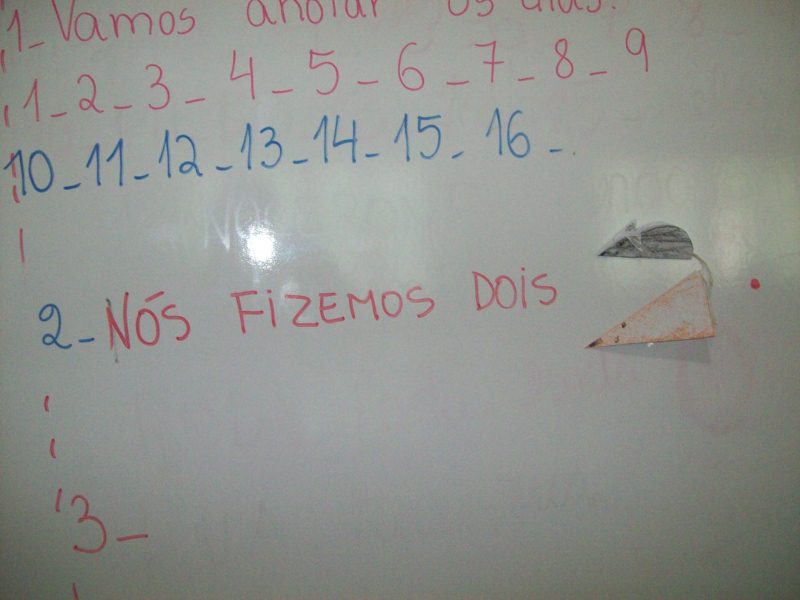 1- Vamos anotar os dias.
1 - 2 - 3 - 4 - 5 - 6 - 7 - 8 - 9
10 - 11 - 12 - 13 - 14 - 15 - 16 -
2 - NÓS FIZEMOS DOIS .
3 -